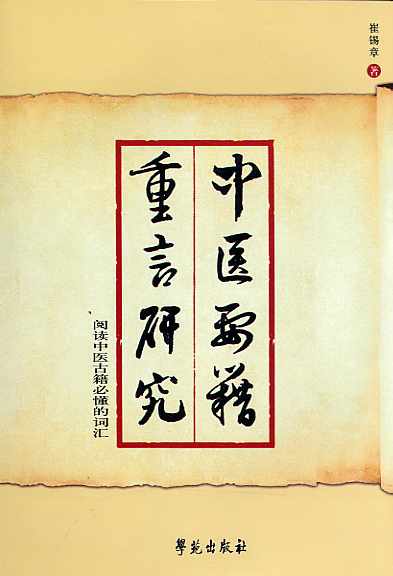 崔锡章 著
中医要籍
重言研究
阅读中医古籍必懂的词汇
學苑出版社